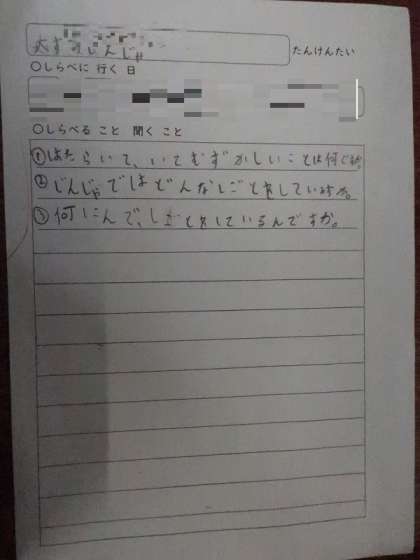 大す じんじゃ たんけんたい
○しらべに 行く 日
○しらべる こと 聞く こと
①はたらいて、いてむずかしいことは何ですか。
②じんじゃではどんなしごとをしていますか。
③何にんで、しごとをしているんですか。